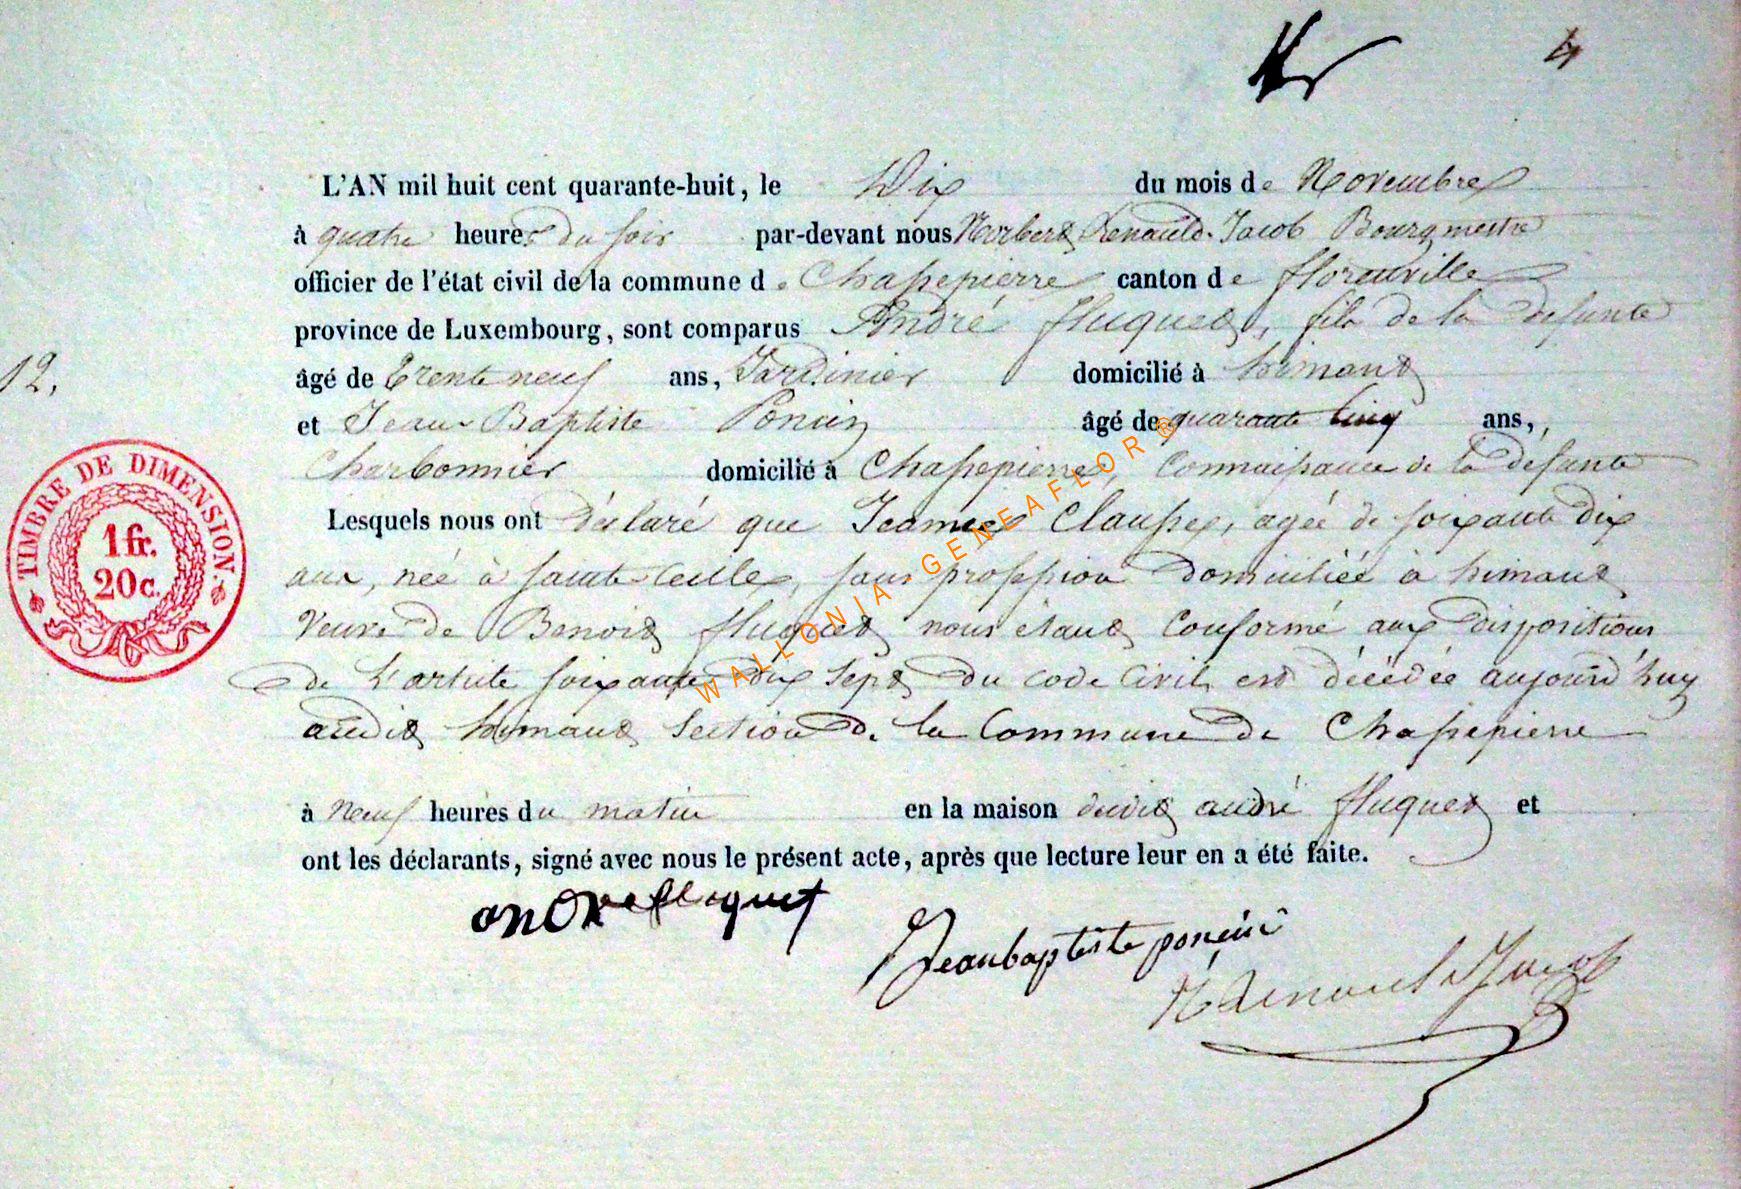 4
L'AN mil huit cent quarante-huit, le Dix du mois de Novembre
à quatre heures du soir par-devant nous Norbert Renauld Jacob Bourgmestre
officier de l'état civil de la commune de Chassepierre canton de florenville
province de Luxembourg, sont comparus André fluquet, fils de la défunte
12.
âgé de trente neuf ans, Jardinier domicilié à
et Jean Baptiste Poncin âgé de quarante cinq ans,
Charbonnier domicilié à Chassepierre, Connaissance de la défunte
Lesquels nous ont déclaré que Jeanne Clausse, agée de soixante dix
ans, née à sainte Cecille, sans profession domiciliée à
Veuve de Benoit fluquet nous étant Conformé aux dispositions
de l'article soixante dix sept du code Civil est décédée aujourd'huy
audit section de la Commune de Chassepierre
à neuf heures du matin en la maison dudit andré fluquet et
ont les déclarants, signé avec nous le présent acte, après que lecture leur en a été faite.
TIMBRE DE DIMENSION.
1 fr.
20 c.
WALLONIA-GENEAFLOR ®
andre fluquet
Jeanbaptiste poncin
N Renauld Jacob